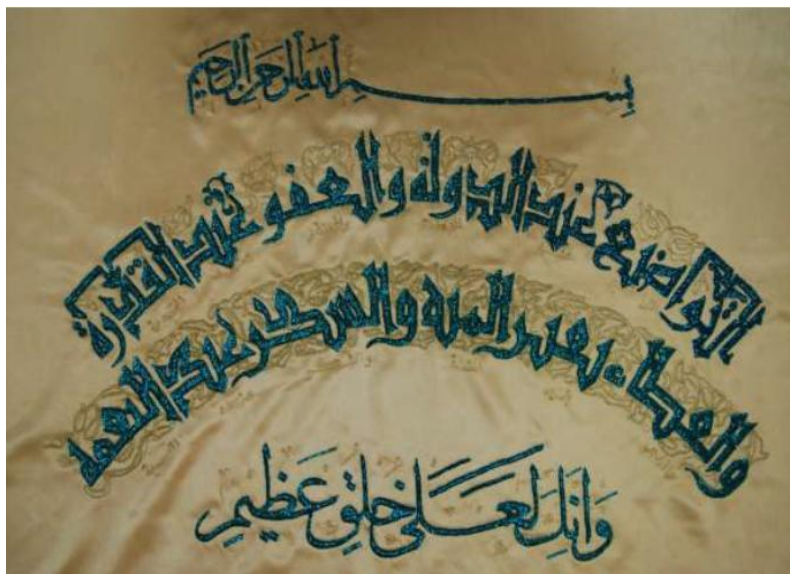 بسم الله الرحمن الرحيم
التواضع عند الدولة والعفو عند القدرة
والعطاء بغير المنة والشكر عند النعمة
وَانكَ لَعَلى خلقٍ عَظيمٍ